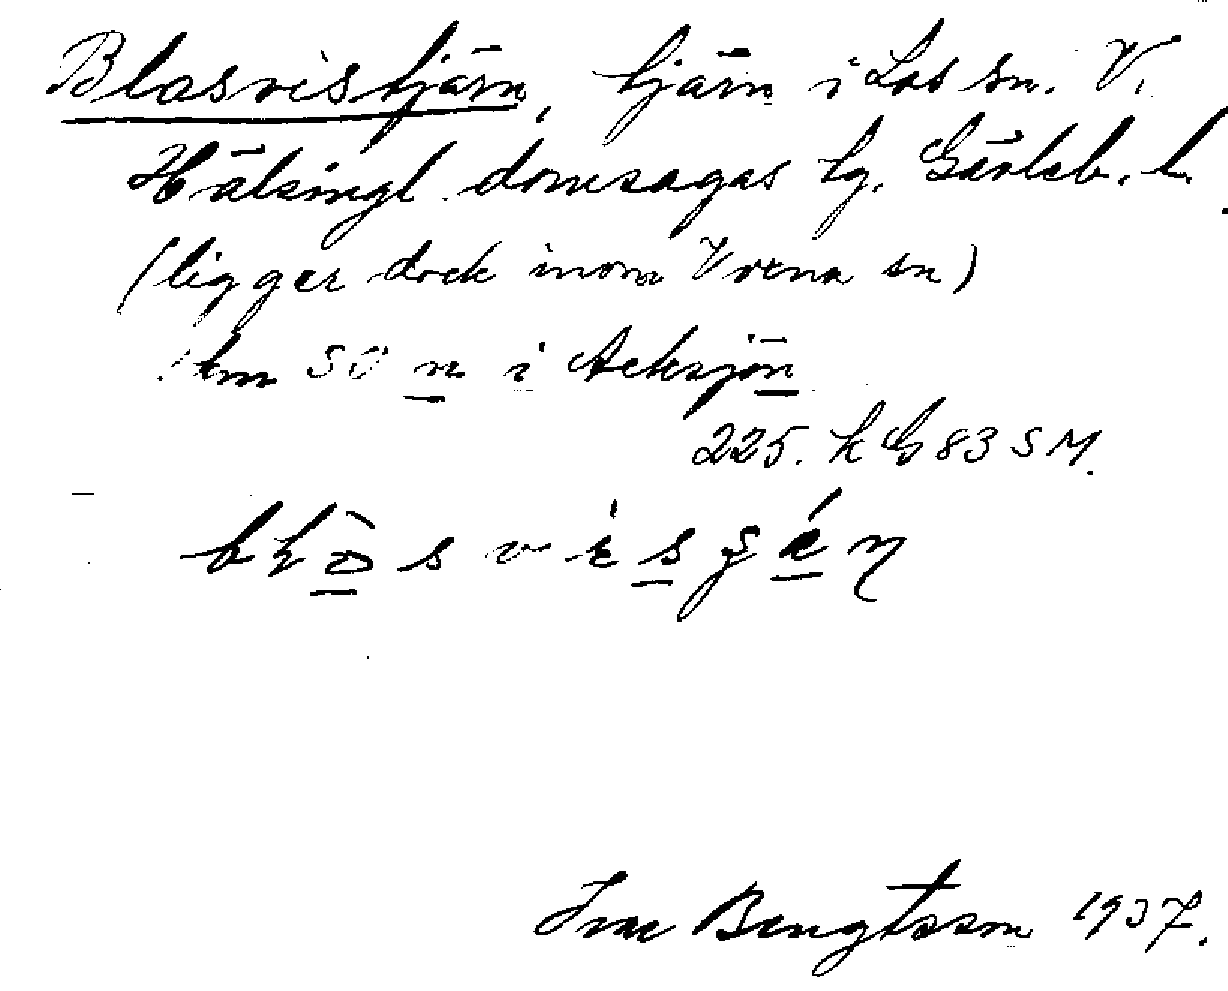 Blasvistjärn, tjärn i Los sn. V.
Hälsingl. domsagas tg. Gävleb. l.
(ligger dock inom Voxna sn)
km SO n i Acksjön
225. K G 83 SM.
Bengtsson 1937.